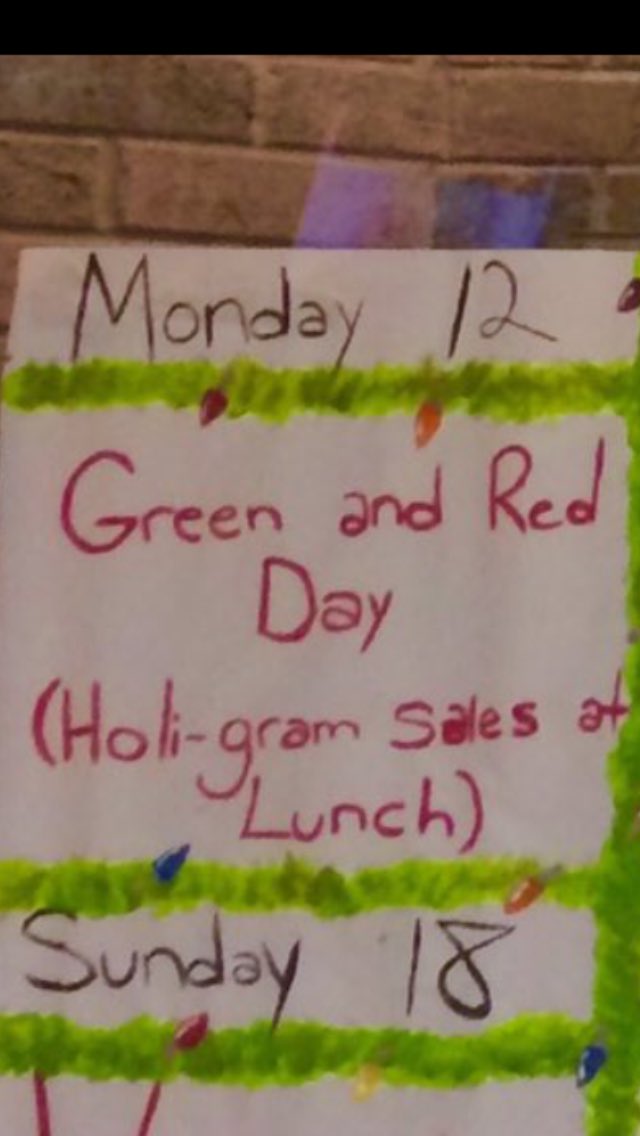 Monday 12
Green and Red
Day
(Holi-gram sales at
Lunch)
Sunday 18